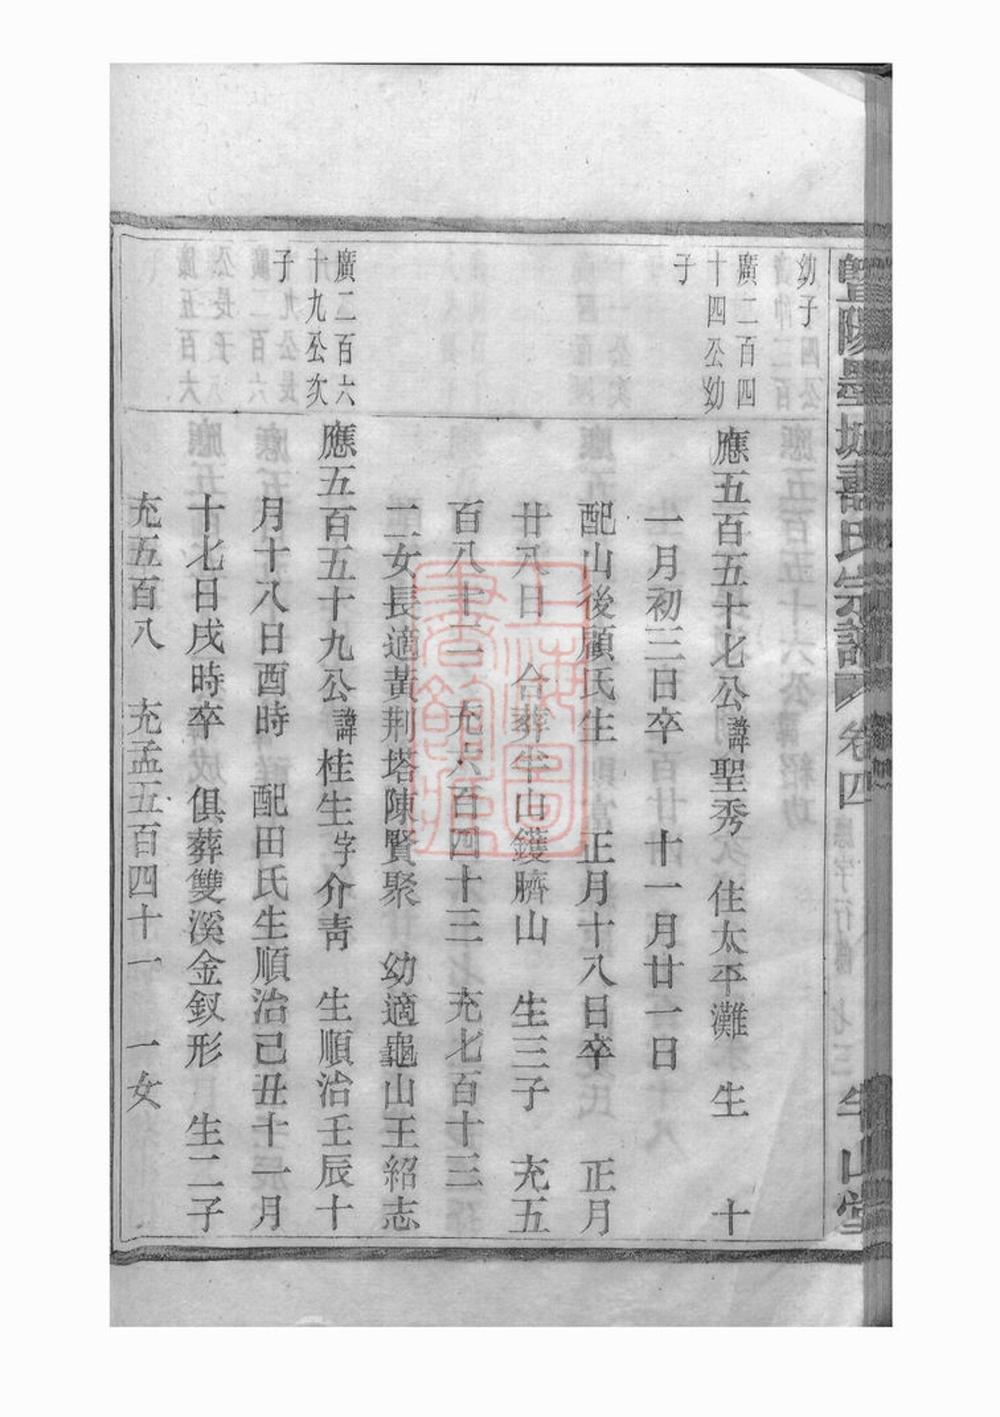 暨陽墨城壽氏宗譜 卷四 應字行傳 七二 牛山堂
幼子
廣二百四
十四公幼
子
應五百五十七公諱聖秀 住太平灘 生 十
一月初三日卒 十一月廿一日
配山後顧氏生 正月十八日卒 正月
廿八日 合葬牛山鑊臍山 生三子 充五
百八十二 充六百四十三 充七百十三
二女長適黃荆塔陳賢聚 幼適龜山王紹志
廣二百六
十九公次
子
應五百五十九公諱桂生字介靑 生順治壬辰十
月十八日酉時 配田氏生順治己丑十一月
十七日戌時卒 俱葬雙溪金釵形 生二子
充五百八 充孟五百四十一 一女